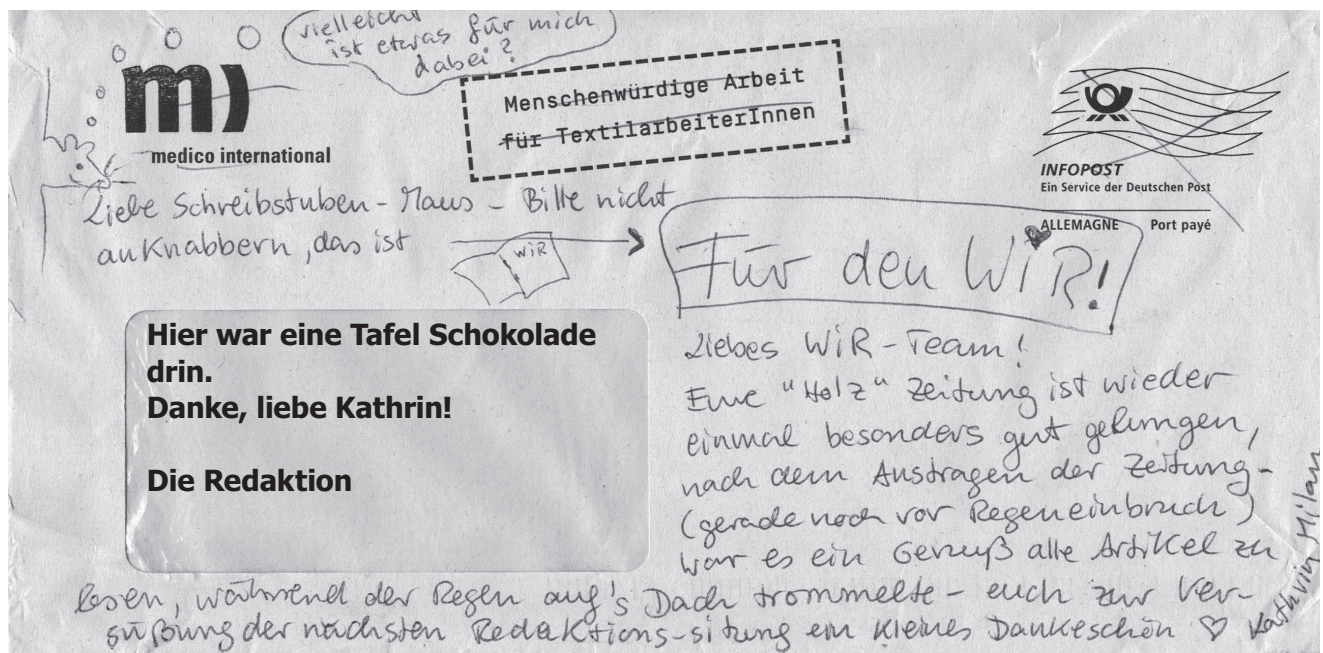 vielleicht
ist etwas für mich
dabei?
m)
medico international
Menschenwürdige Arbeit
für TextilarbeiterInnen
INFOPOST
Ein Service der Deutschen Post
ALLEMAGNE Port payé
Liebe Schreibstuben-Maus - Bitte nicht
anknabbern, das ist
WiR
Für den WiR!
Hier war eine Tafel Schokolade
drin.
Danke, liebe Kathrin!
Die Redaktion
Liebes WiR-Team!
Eine "Holz" Zeitung ist wieder
einmal besonders gut gelungen,
nach dem Austragen der Zeitung-
(gerade noch vor Regeneinbruch)
war es ein Genuß alle Artikel zu
lesen, während der Regen auf's Dach trommelte - euch zur Ver-
süßung der nächsten Redaktions-sitzung ein kleines Dankeschön ♡
Kathrin Milan